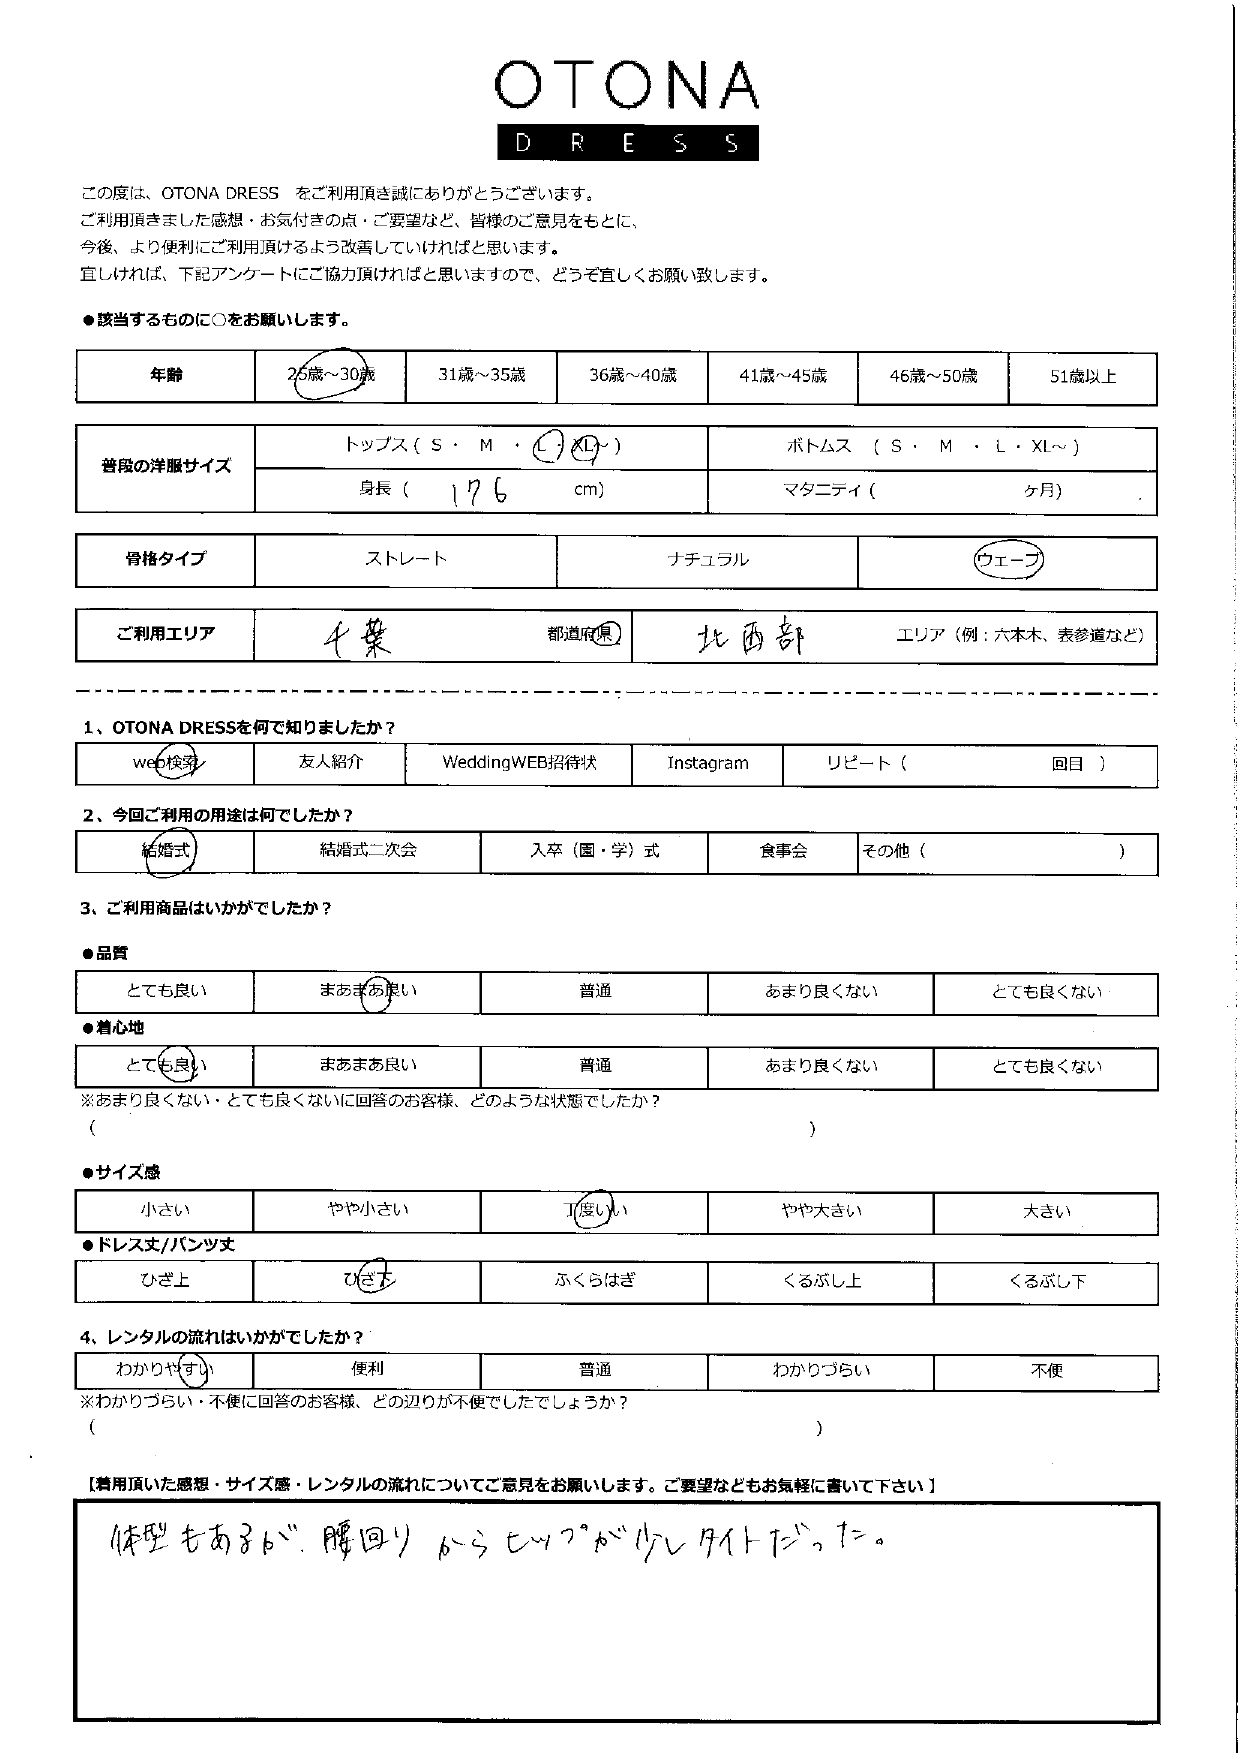 OTONA
DRESS
この度は、OTONA DRESS　をご利用頂き誠にありがとうございます。
ご利用頂きました感想・お気付きの点・ご要望など、皆様のご意見をもとに、
今後、より便利にご利用頂けるよう改善していければと思います。
宜しければ、下記アンケートにご協力頂ければと思いますので、どうぞ宜しくお願い致します。
●該当するものに○をお願いします。
年齢 25歳～30歳 31歳～35歳 36歳～40歳 41歳～45歳 46歳～50歳 51歳以上
普段の洋服サイズ トップス ( S ・ M ・ L ・ XL～ ) ボトムス ( S ・ M ・ L ・ XL～ )
身長 ( 176 cm) マタニティ ( ヶ月)
骨格タイプ ストレート ナチュラル ウェーブ
ご利用エリア 千葉 都道府県 北西部 エリア（例：六本木、表参道など）
1、OTONA DRESSを何で知りましたか？
web検索 友人紹介 WeddingWEB招待状 Instagram リピート（ 回目 ）
2、今回ご利用の用途は何でしたか？
結婚式 結婚式二次会 入卒（園・学）式 食事会 その他（ ）
3、ご利用商品はいかがでしたか？
●品質
とても良い まあまあ良い 普通 あまり良くない とても良くない
●着心地
とても良い まあまあ良い 普通 あまり良くない とても良くない
※あまり良くない・とても良くないに回答のお客様、どのような状態でしたか？
（ ）
●サイズ感
小さい やや小さい 丁度いい やや大きい 大きい
●ドレス丈/パンツ丈
ひざ上 ひざ下 ふくらはぎ くるぶし上 くるぶし下
4、レンタルの流れはいかがでしたか？
わかりやすい 便利 普通 わかりづらい 不便
※わかりづらい・不便に回答のお客様、どの辺りが不便でしたでしょうか？
（ ）
【着用頂いた感想・サイズ感・レンタルの流れについてご意見をお願いします。ご要望などもお気軽に書いて下さい】
体型もあるが、腰回りからヒップが少しタイトだった。